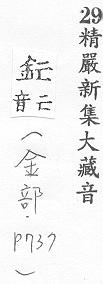 29精嚴新集大藏音
音
(金部.P737)